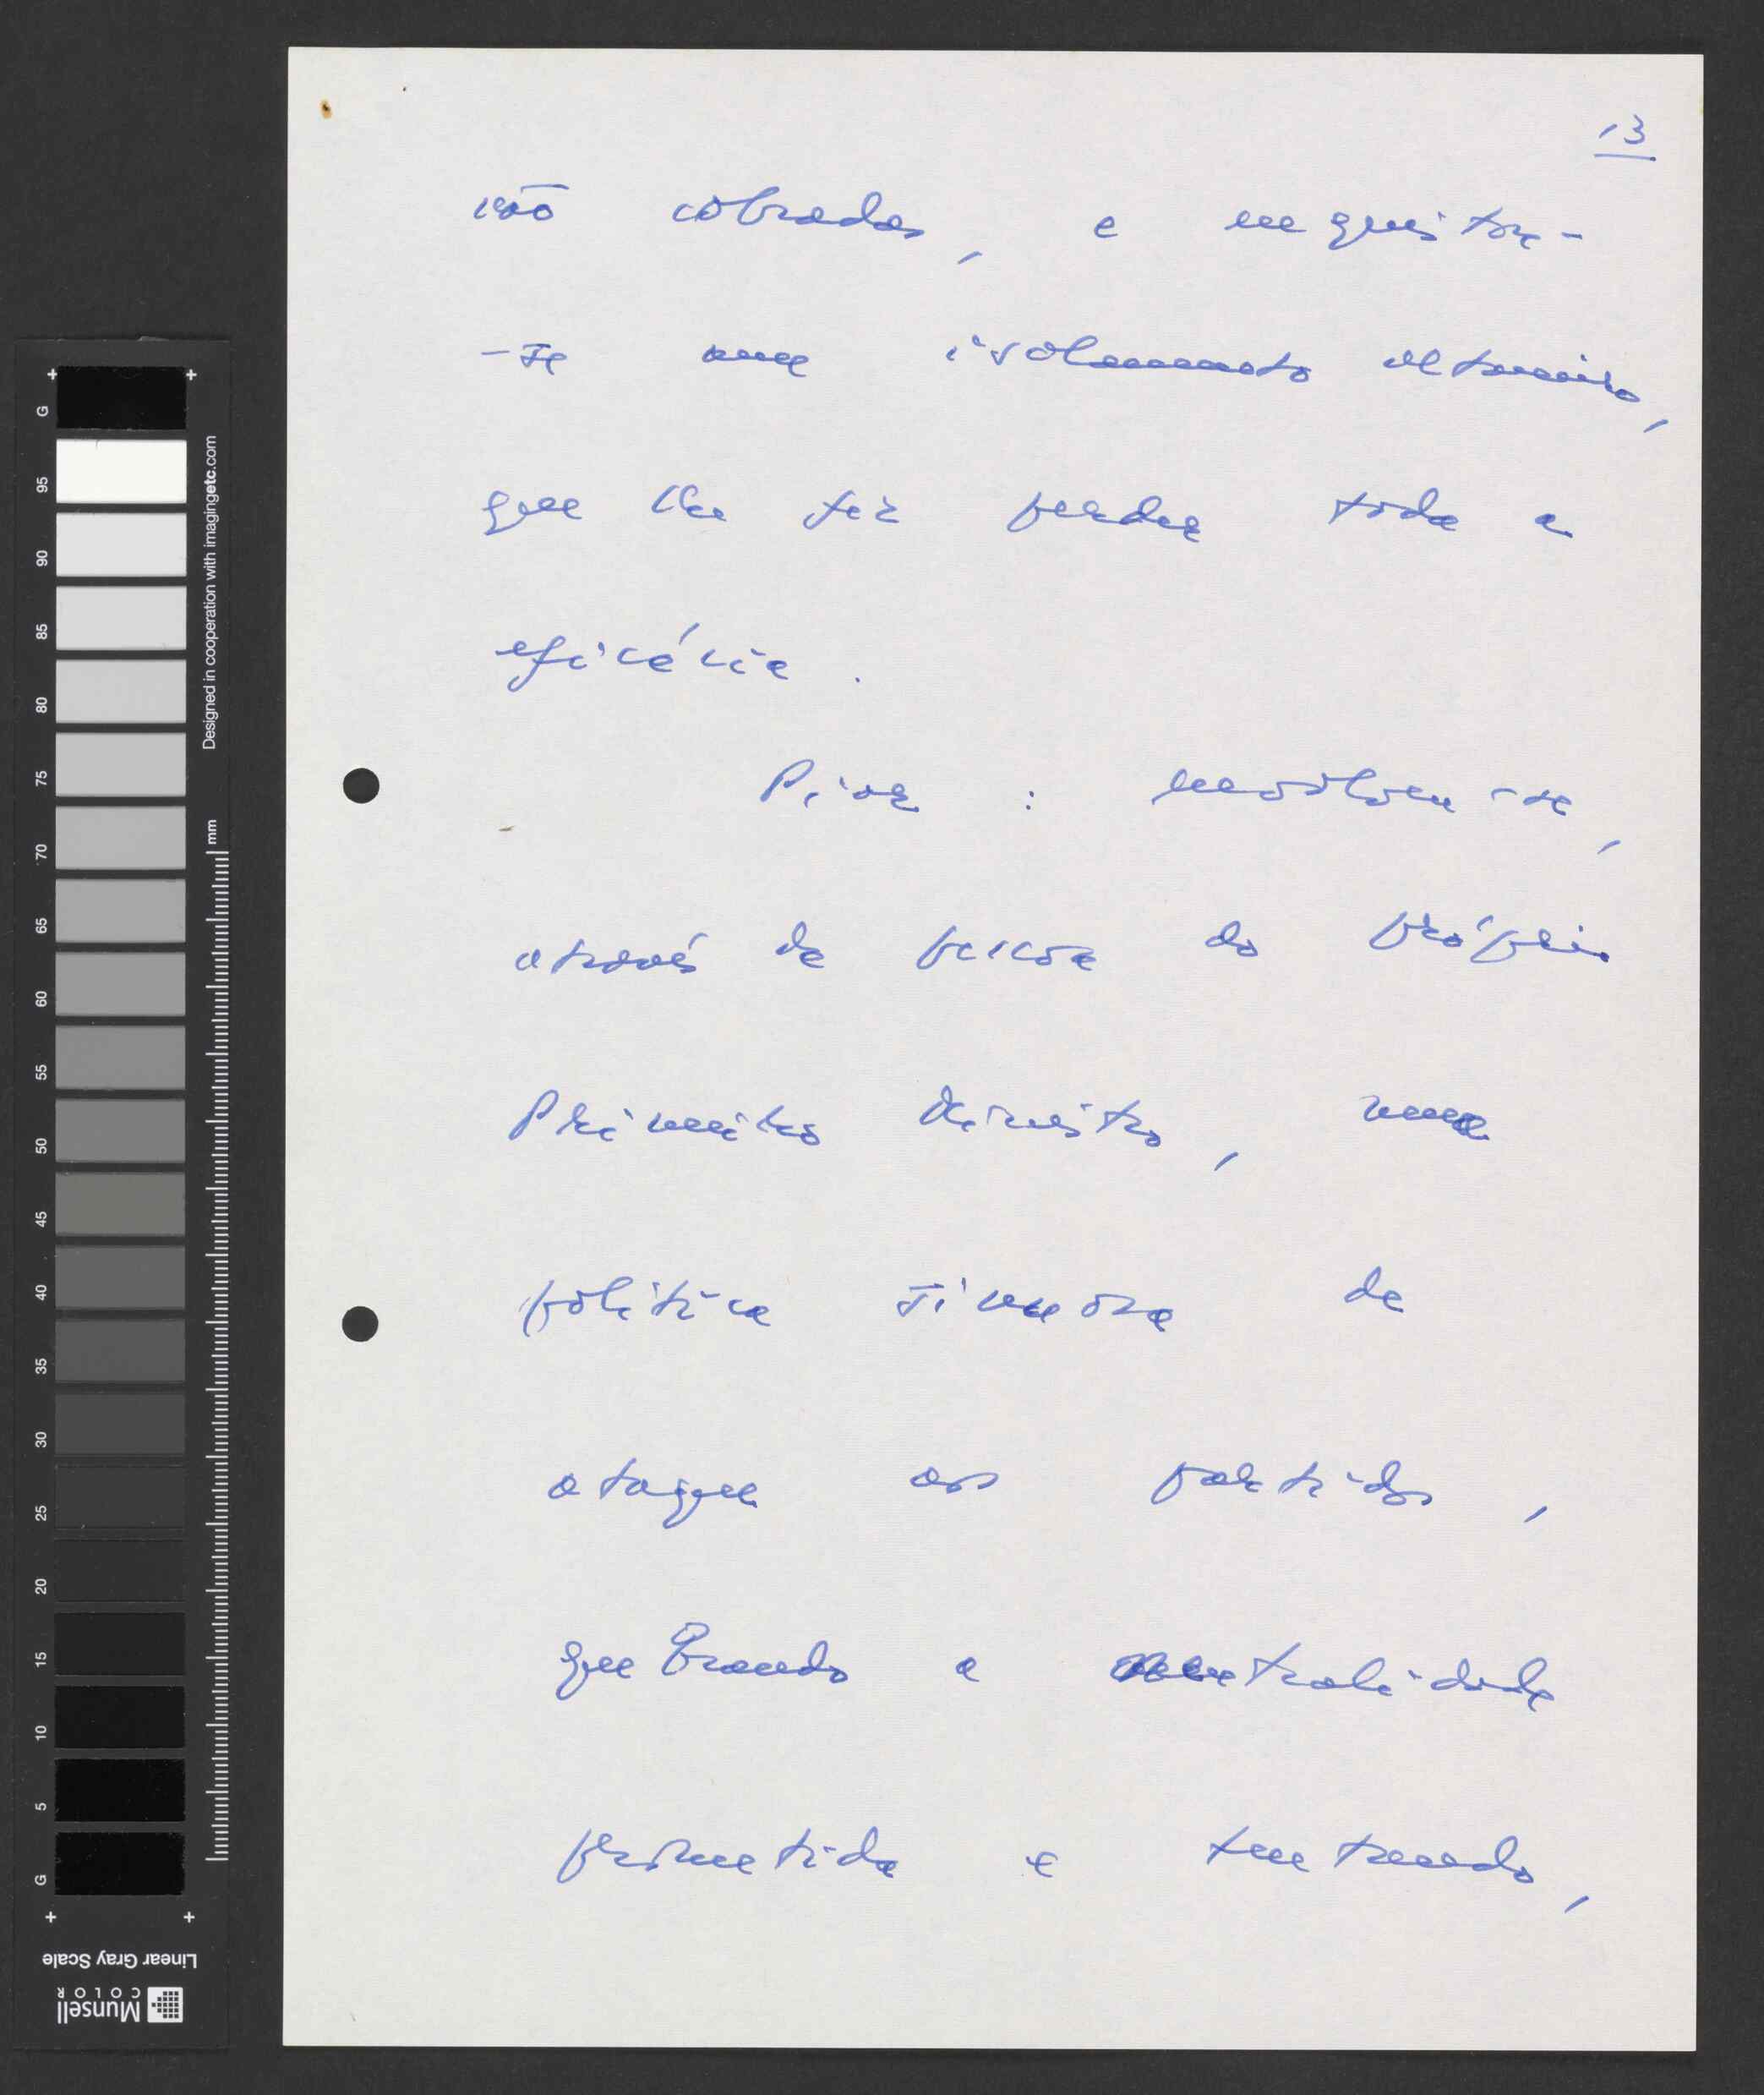 13
não cobradas, e enquistou-
-se num isolamento altaneiro,
que lhe fez perder toda a
eficácia.
Pior: envolveu-se,
através da pessoa do próprio
Primeiro Ministro, numa
política sinuosa de
ataque aos partidos,
quebrando a neutralidade
prometida e tentando,
G
95
90
85
80
75
70
65
60
55
50
45
40
35
30
25
20
15
10
5
G
Designed in cooperation with imagingetc.com
mm
Linear Gray Scale
Munsell
COLOR